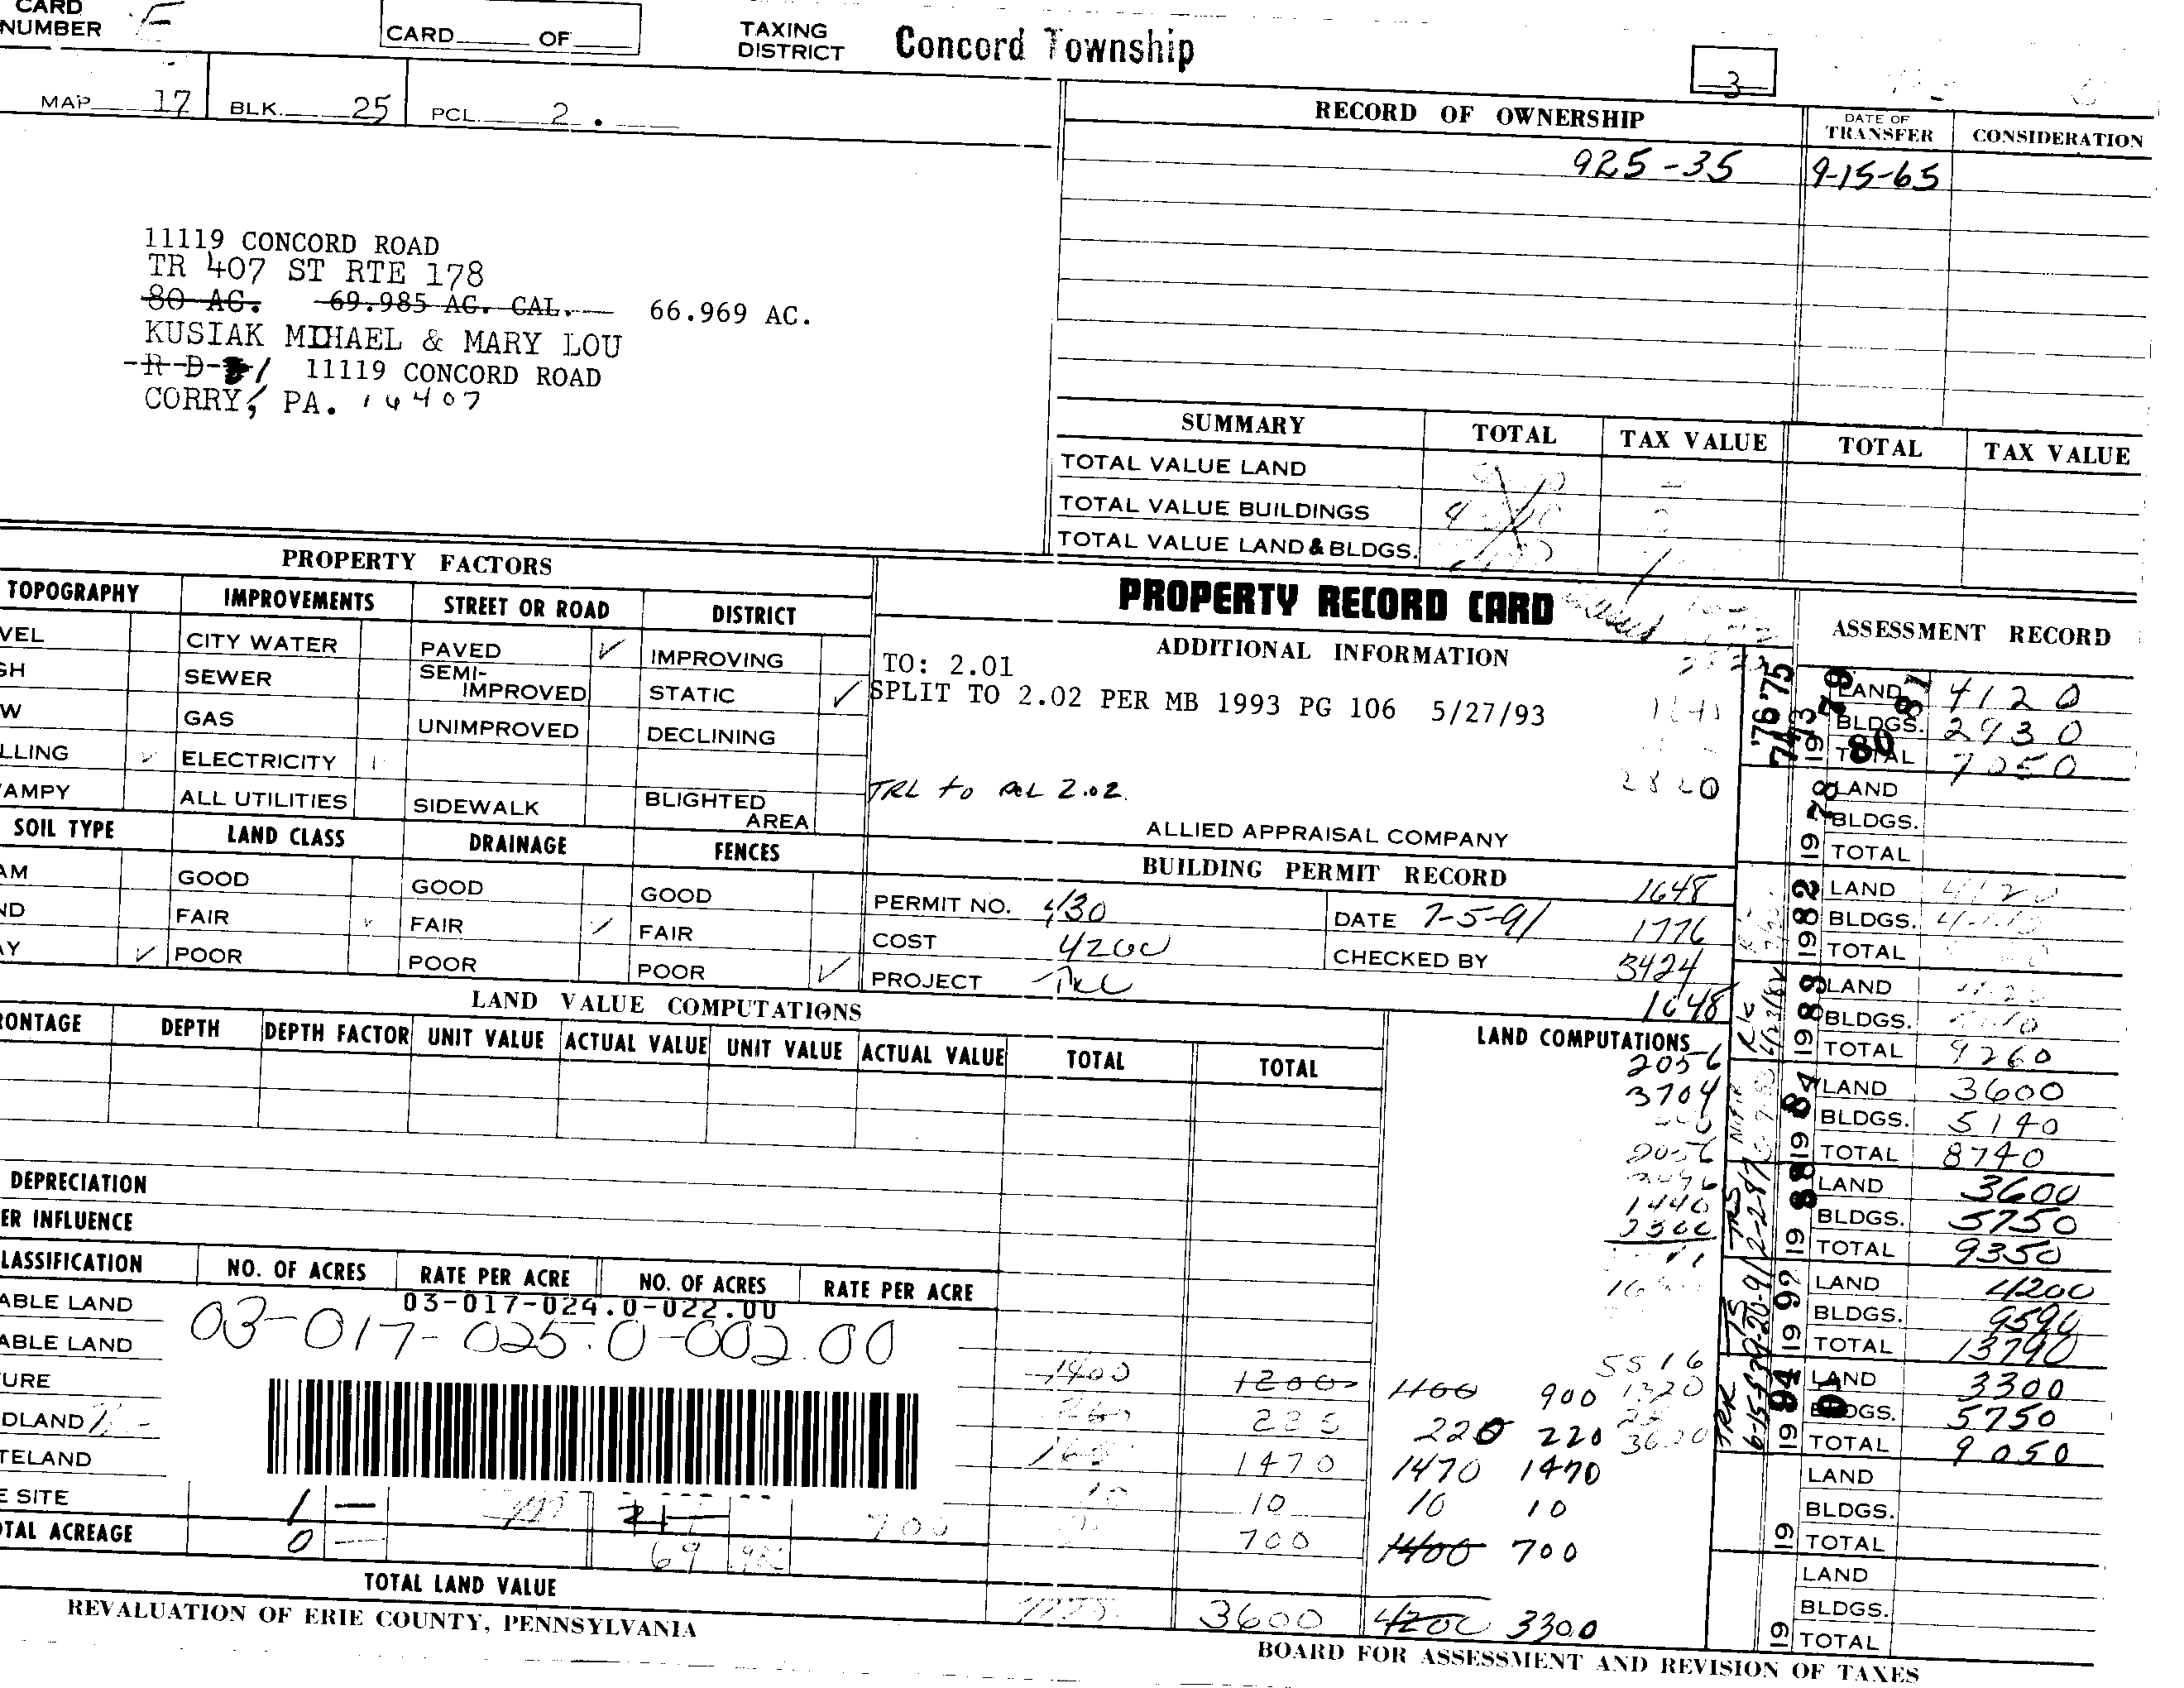 CARD
NUMBER E
CARD OF
TAXING
DISTRICT Concord Township
3
MAP 17 BLK. 25 PCL. 2 .
RECORD OF OWNERSHIP DATE OF TRANSFER CONSIDERATION
925-35 9-15-65
11119 CONCORD ROAD
TR 407 ST RTE 178
80 AC. 69.985 AC. CAL. 66.969 AC.
KUSIAK MIHAEL & MARY LOU
R D 1 11119 CONCORD ROAD
CORRY, PA. 16407
SUMMARY TOTAL TAX VALUE TOTAL TAX VALUE
TOTAL VALUE LAND
TOTAL VALUE BUILDINGS
TOTAL VALUE LAND & BLDGS.
PROPERTY FACTORS
TOPOGRAPHY IMPROVEMENTS STREET OR ROAD DISTRICT
VEL CITY WATER PAVED ✓ IMPROVING
GH SEWER SEMI-IMPROVED STATIC ✓
W GAS UNIMPROVED DECLINING
LLING ✓ ELECTRICITY
AMPY ALL UTILITIES SIDEWALK BLIGHTED AREA
SOIL TYPE LAND CLASS DRAINAGE FENCES
AM GOOD GOOD GOOD
ND FAIR ✓ FAIR ✓ FAIR
AY ✓ POOR POOR POOR ✓
PROPERTY RECORD CARD
ADDITIONAL INFORMATION
TO: 2.01
SPLIT TO 2.02 PER MB 1993 PG 106 5/27/93
TRL to PCL 2.02.
2820
ALLIED APPRAISAL COMPANY
BUILDING PERMIT RECORD
1648
PERMIT NO. 430 DATE 7-5-91 1776
COST 4200 CHECKED BY 3424
PROJECT TRL 1648
ASSESSMENT RECORD
'76 '75 74 73 79 80 81
19 LAND 4120
BLDGS. 2930
TOTAL 7050
1978 LAND
BLDGS.
TOTAL
1982 LAND 4120
BLDGS.
TOTAL
1983 LAND
BLDGS.
TOTAL 9260
1984 LAND 3600
BLDGS. 5140
TOTAL 8740
TRS 2-2-87
1988 LAND 3600
BLDGS. 5750
TOTAL 9350
TS 9-20-91
1992 LAND 4200
BLDGS. 9590
TOTAL 13790
TRK
1994 LAND 3300
BLDGS. 5750
TOTAL 9050
LAND
BLDGS.
19 TOTAL
LAND
BLDGS.
19 TOTAL
LAND VALUE COMPUTATIONS
RONTAGE DEPTH DEPTH FACTOR UNIT VALUE ACTUAL VALUE UNIT VALUE ACTUAL VALUE TOTAL TOTAL
LAND COMPUTATIONS
2056
3704
2056
1440
5516
1320
DEPRECIATION
ER INFLUENCE
LASSIFICATION NO. OF ACRES RATE PER ACRE NO. OF ACRES RATE PER ACRE
ABLE LAND 03-017-024.0-022.00
ABLE LAND 03-017-025.0-002.00
URE 1400 1200 1100 900
DLAND 225 220 220
TELAND 1470 1470 1470
E SITE 1 — 700 10 10 10
OTAL ACREAGE 0 — 69 700 1400 700
TOTAL LAND VALUE 3600 4200 3300
REVALUATION OF ERIE COUNTY, PENNSYLVANIA
BOARD FOR ASSESSMENT AND REVISION OF TAXES